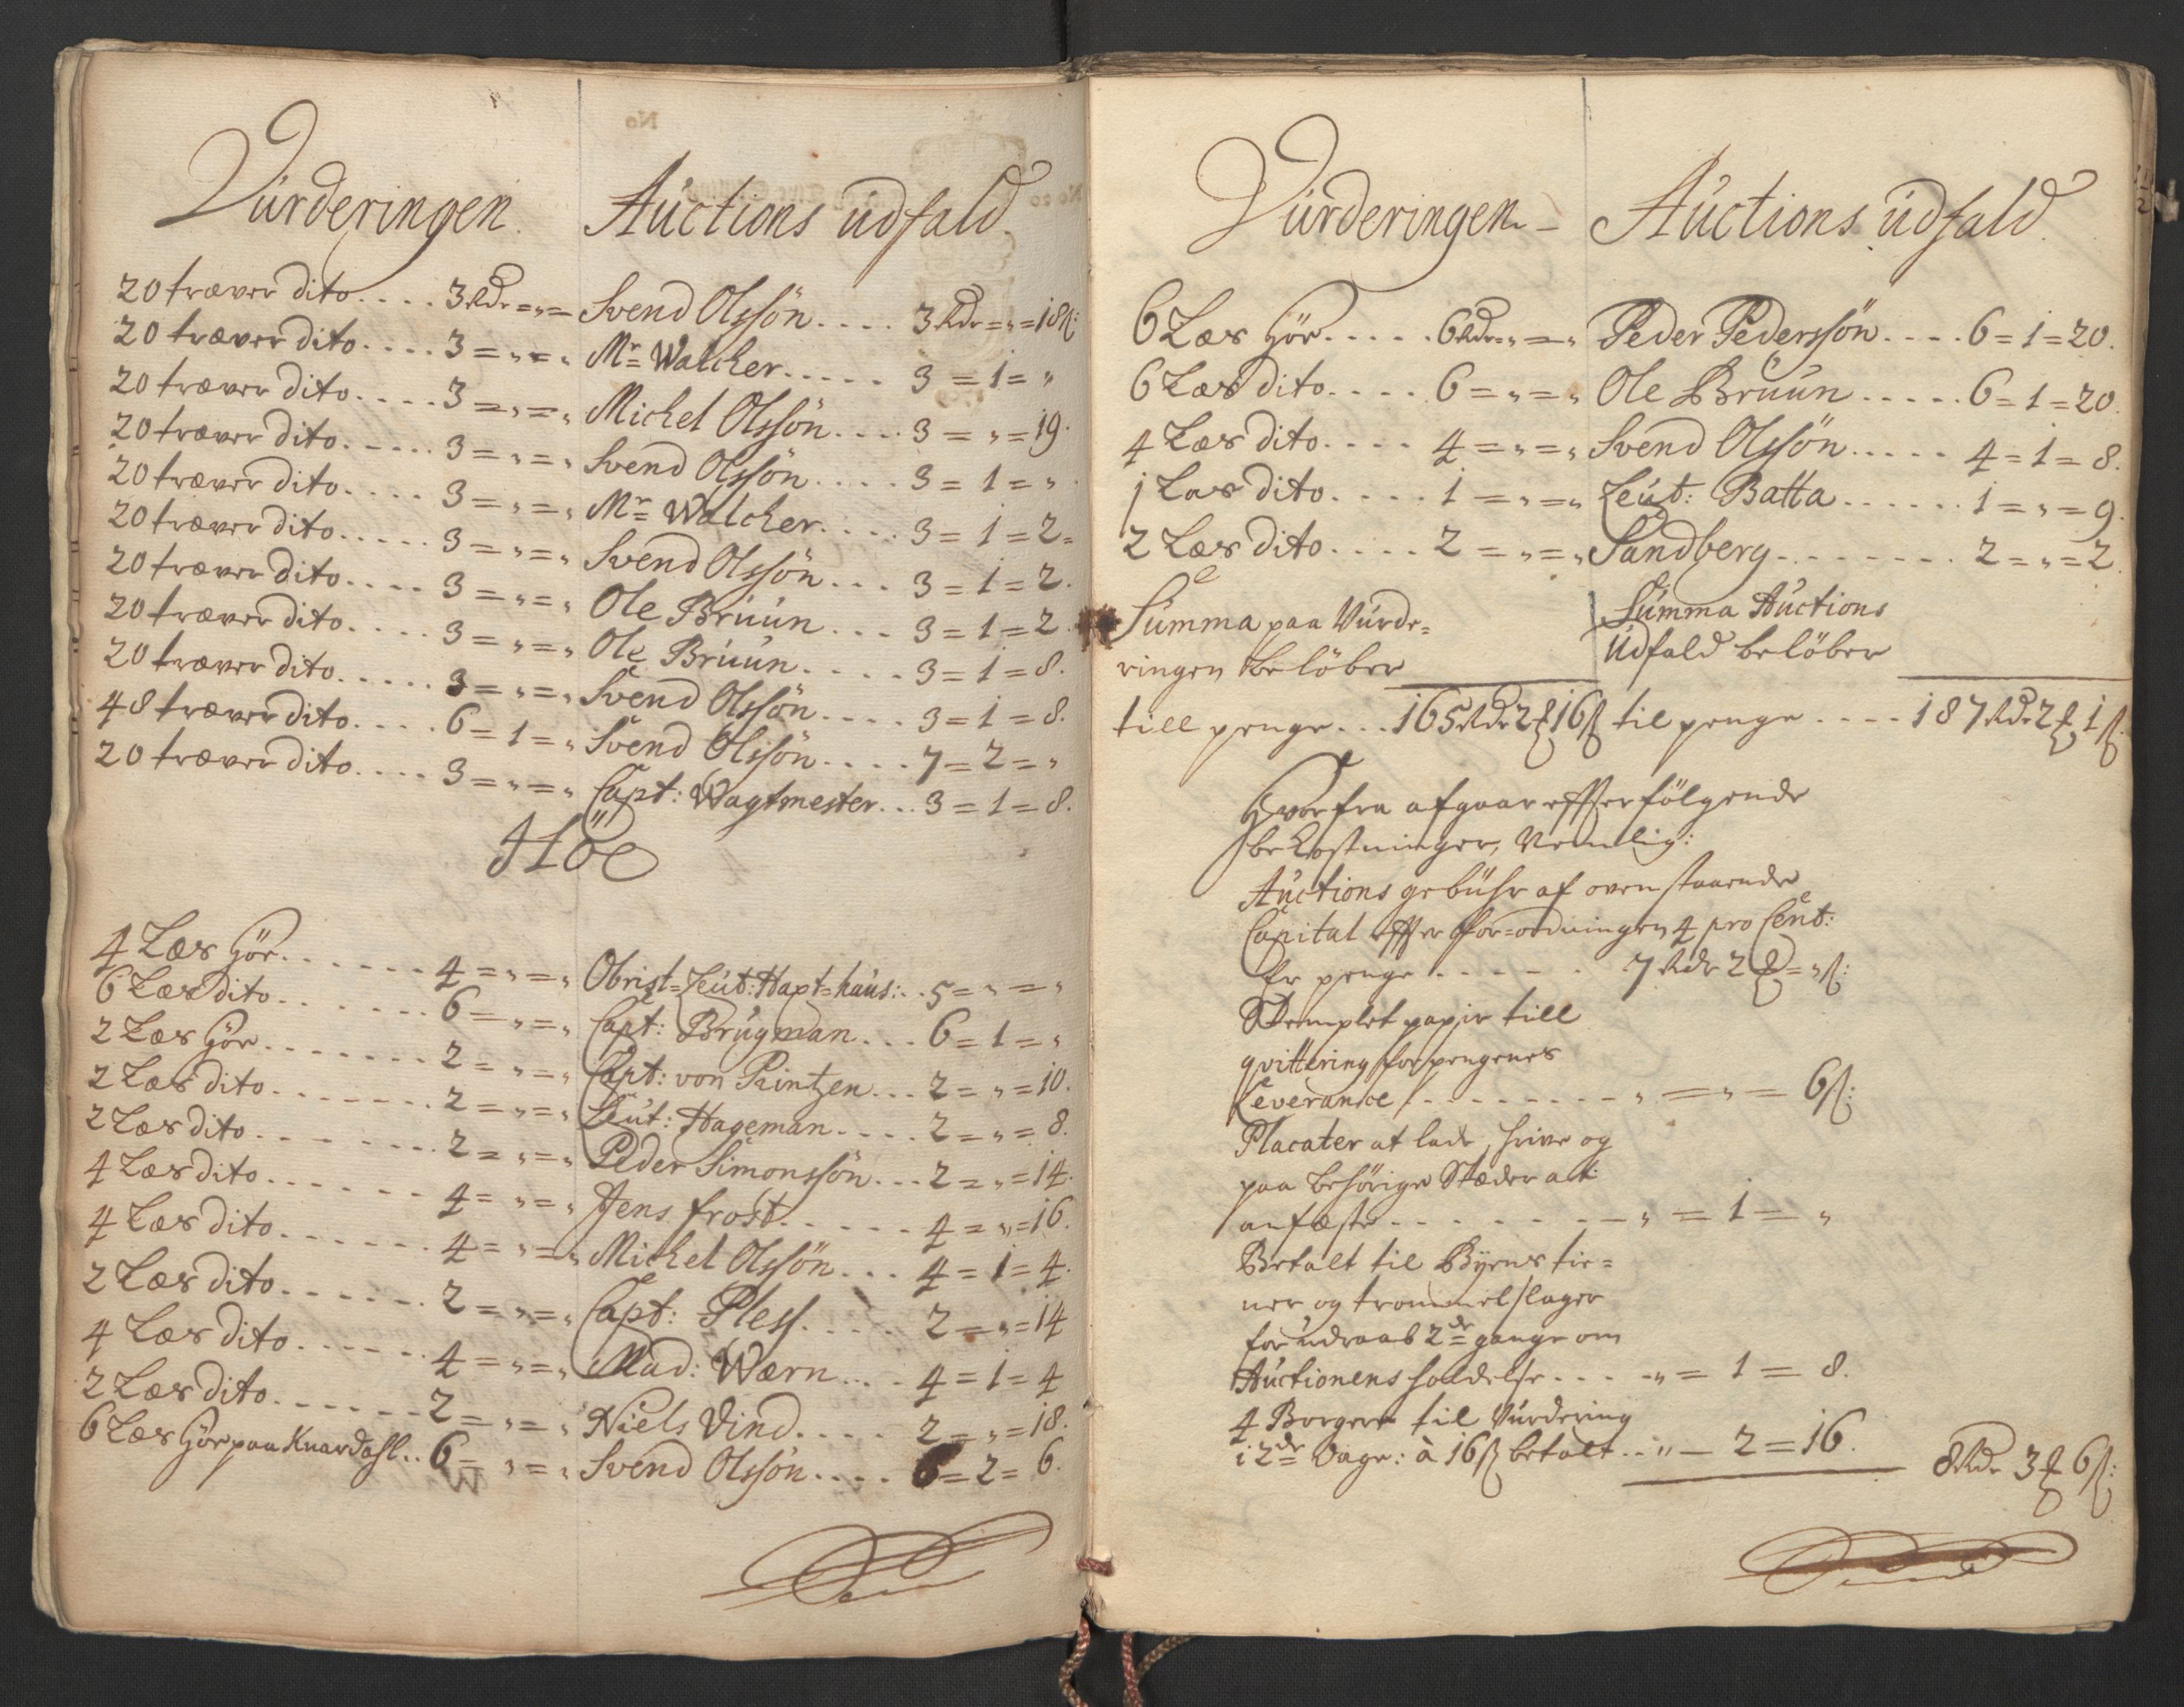 Vurderingen. Auctions udfald.
20 træver dito.... 3 Rdr = „ = Svend Olssön.... 3 Rdr = „ = 18 ß:
20 træver dito.... 3 = „ = „ Mr Walcher..... 3 = 1 = „
20 træver dito.... 3 = „ = „ Michel Olssön.... 3 = „ = 19.
20 træver dito..... 3 = „ = „ Svend Olssön..... 3 = 1 = „.
20 træver dito.... 3 = „ = „ Mr Walcher.... 3 = 1 = 2 =
20 træver dito..... 3 = „ = „ Svend Olssön... 3 = 1 = 2.
20 træver dito.... 3 = „ = „ Ole Bruun... 3 = 1 = 2.
20 træver dito.... 3 = „ = „ Ole Bruun..... 3 = 1 = 8.
20 træver dito..... 3 = „ = „ Svend Olssön.... 3 = 1 = 8.
48 træver dito.... 6 = 1 = „ Svend Olssön.... 7 = 2 = „
20 træver dito.... 3 = „ = „ Capt: Wagtmester... 3 = 1 = 8.
Höe
4 Læs Höe....... 4 = „ = „ Obrist=Leut: Hapt=haus:.. 5 = „ = „
6 Læs dito....... 6 = „ = „ Capt: Brugman... 6 = 1 = „
2 Læs Höe....... 2 = „ = „ Capt: von Printzen... 2 = „ = 10.
2 Læs dito....... 2 = „ = „ Leut: Hageman.... 2 = „ = 8.
2 Læs dito....... 2 = „ = „ Peder Simonssön... 2 = „ = 14.
4 Læs dito...... 4 = „ = „ Jens frost...... 4 = „ = 16.
4 Læs dito...... 4 = „ = „ Michel Olssön... 4 = 1 = 4.
2 Læs dito...... 2 = „ = „ Capt: Pless..... 2 = „ = 14
4 Læs dito...... 4 = „ = „ Mad: Wærn... 4 = 1 = 4
2 Læs dito...... 2 = „ = „ Niels Vind.... 2 = „ = 18.
6 Læs Höe paa Knardahl.. 6 = „ = „ Svend Olssön.... 6 = 2 = 6.
Vurderingen - Auctions udfald.
6 Læs Höe..... 6 Rdr = „ = „ Peder Pederssön.... 6 = 1 = 20.
6 Læs dito.... 6 = „ = „ Ole Bruun..... 6 = 1 = 20.
4 Læs dito.... 4 = „ = „ Svend Olssön..... 4 = 1 = 8.
1 Læs dito.... 1 = „ = „ Leut: Batta...... 1 = „ = 9.
2 Læs dito.... 2 = „ = „ Sandberg........ 2 = „ = 2.
Summa paa Vurde= Summa Auctions
ringen beløber Udfald beløber
till penge... 165 Rdr 2 ₰ 16 ß til penge.... 187 Rdr 2 ₰ 1 ß
Hvorfra afgaar effterfölgende
bekostninger, Nemlig:
Auctions gebühr af ovenstaaende
Capital effter for=ordningen 4 pro Cent:
Er penge...... 7 Rdr 2 ₰ = „ ß:
Stemplet papir till
qvittering for pengenes
Leverance......... „ = „ = 6 ß:
Placater at lade skrive og
paa behörige Stæder at
anfæste........ „ = 1 = „
Betalt til Byens tie=
ner og trommelslager
for udraab 2de gange om
Auctionens holdelse..... „ = 1 = 8.
4 Borgere til Vurdering
i 2de Dage: à 16 ß betalt.. „ - 2 = 16. 8 Rdr 3 ₰ 6 ß: